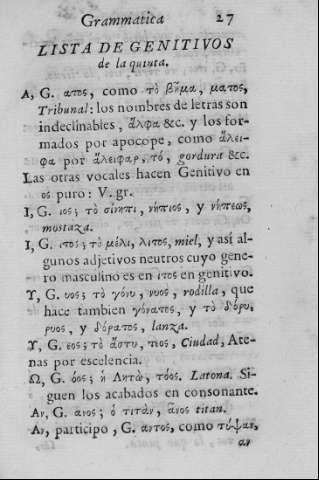 Grammatica 27
LISTA DE GENITIVOS
de la quinta.
A, G. ατος, como τὸ βῆμα, ματος,
Tribunal: los nombres de letras son
indeclinables, ἄλφα &c. y los for-
mados por apocope, como ἄλει-
φα por ἄλειφαρ, τό, gordura &c.
Las otras vocales hacen Genitivo en
ος puro: V. gr.
I, G. ιος; τὸ σίνηπι, νήπιος, y νήπεως,
mostaza.
I, G. ιτος; τὸ μέλι, λιτος, miel, y así al-
gunos adjetivos neutros cuyo gene-
ro masculino es en ιτος en genitivo.
Υ, G. υος; τὸ γόνυ, νυος, rodilla, que
hace tambien γόνατος, y τὸ δόρυ,
ρυος, y δόρατος, lanza.
Υ, G. εος; τὸ ἄστυ, τιος, Ciudad, Ate-
nas por escelencia.
Ω, G. όος; ἡ Λητὼ, τόος. Latona. Si-
guen los acabados en consonante.
Αν, G. ανος; ὁ τιτὰν, ᾶνος titan.
Αν, participo, G. αντος, como τύψαν,
αν